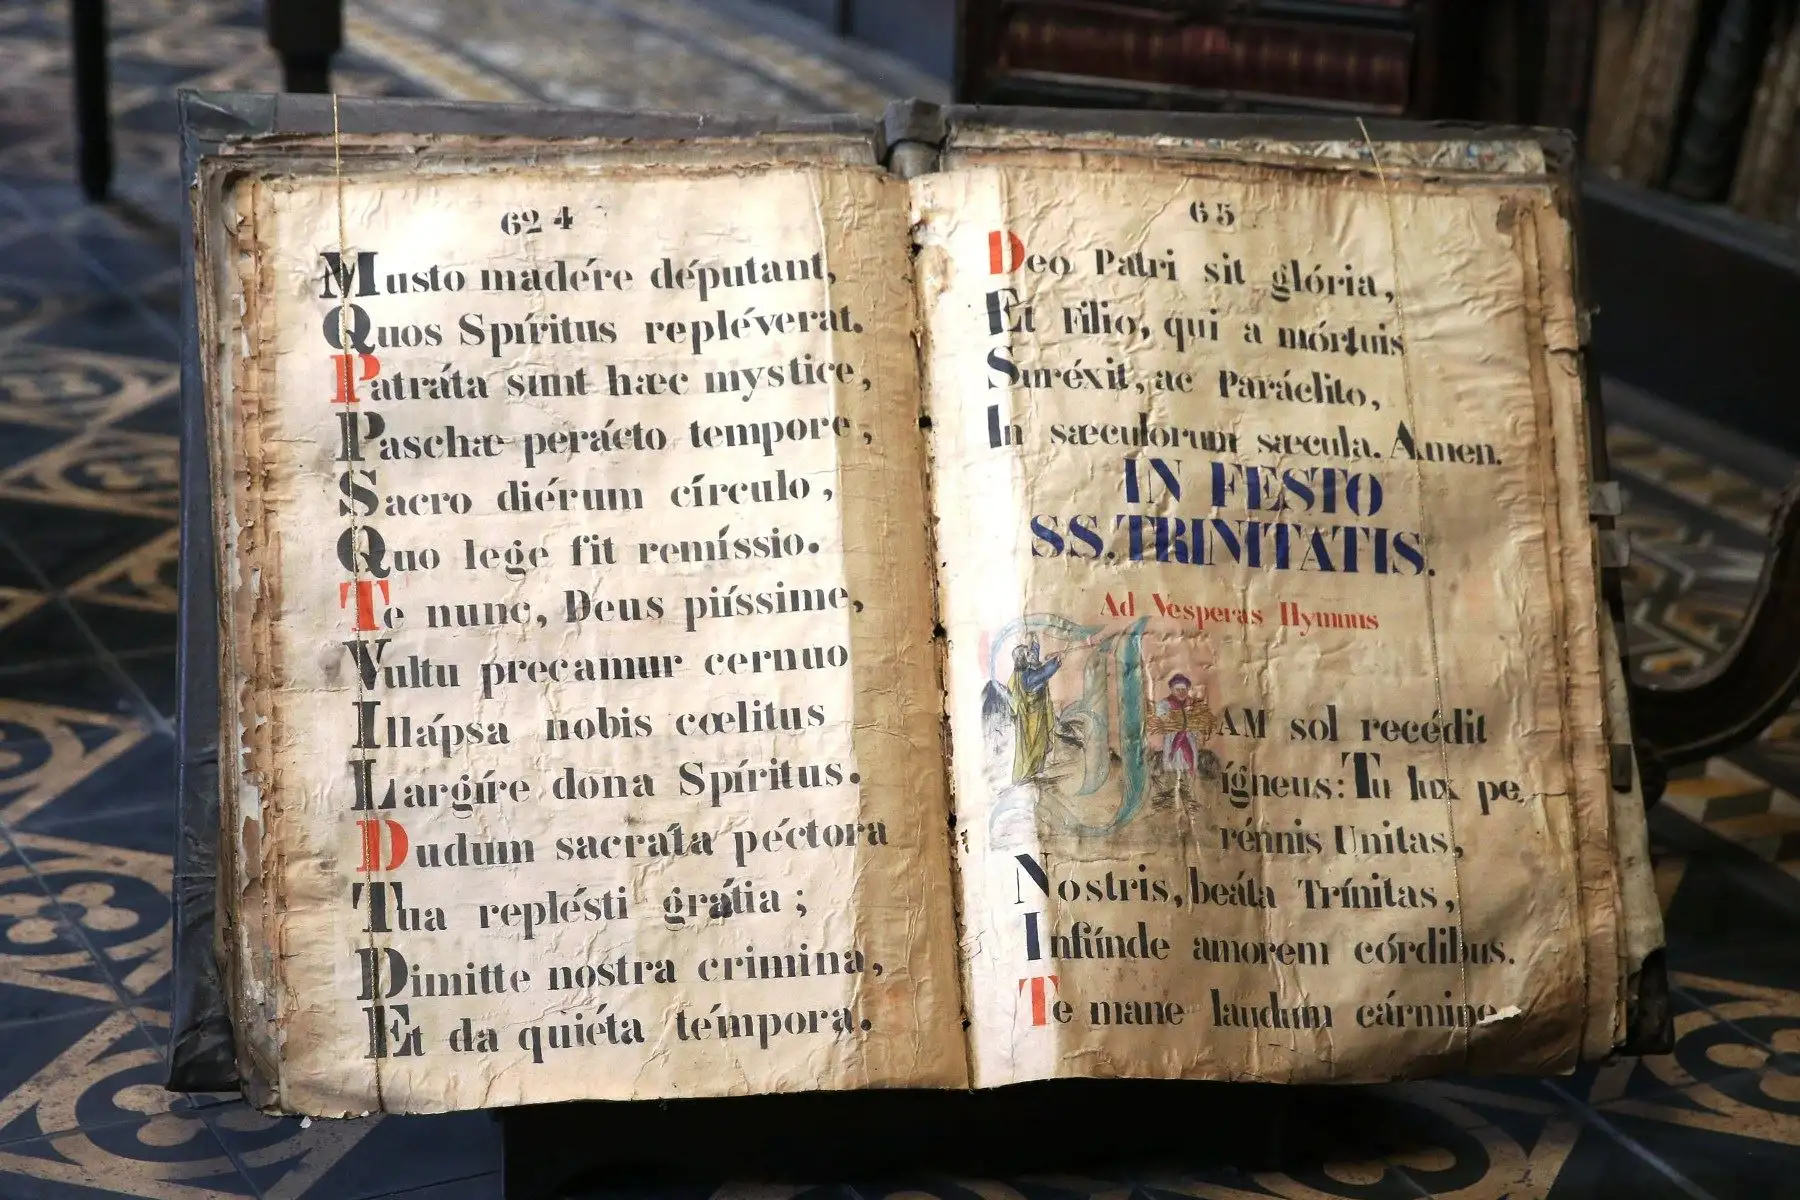 624
Musto madére députant,
Quos Spíritus repléverat.
Patráta sunt hæc mystice,
Paschæ perácto tempore,
Sacro diérum círculo,
Quo lege fit remíssio.
Te nunc, Deus piíssime,
Vultu precamur cernuo
Illápsa nobis cœlitus
Largíre dona Spíritus.
Dudum sacráta péctora
Tua replésti grátia;
Dimitte nostra crimina,
Et da quiéta témpora.
65
Deo Patri sit glória,
Et Filio, qui a mórtuis
Suréxit, ac Paráclito,
In sæculorum sæcula. Amen.
IN FESTO
SS. TRINITATIS.
Ad Vesperas Hymnus
JAM sol recédit
ígneus: Tu lux pe
rénnis Unitas,
Nostris, beáta Trínitas,
Infúnde amorem córdibus.
Te mane laudum cármine